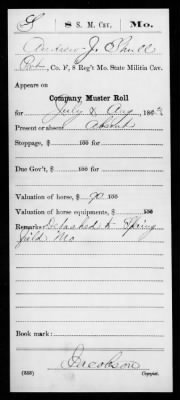 S 8 S. M. Cav. Mo.
Andrew J. Shull
Pvt., Co. F, 8 Reg't Mo. State Militia Cav.
Appears on
Company Muster Roll
for July & Aug, 186
Present or absent Absent
Stoppage, $ 100 for
Due Gov't, $ 100 for
Valuation of horse, $ 90 100
Valuation of horse equipments, $ 100
Remarks: Detached to Spring
field Mo
Book mark:
Jacobson
(358) Copyist.